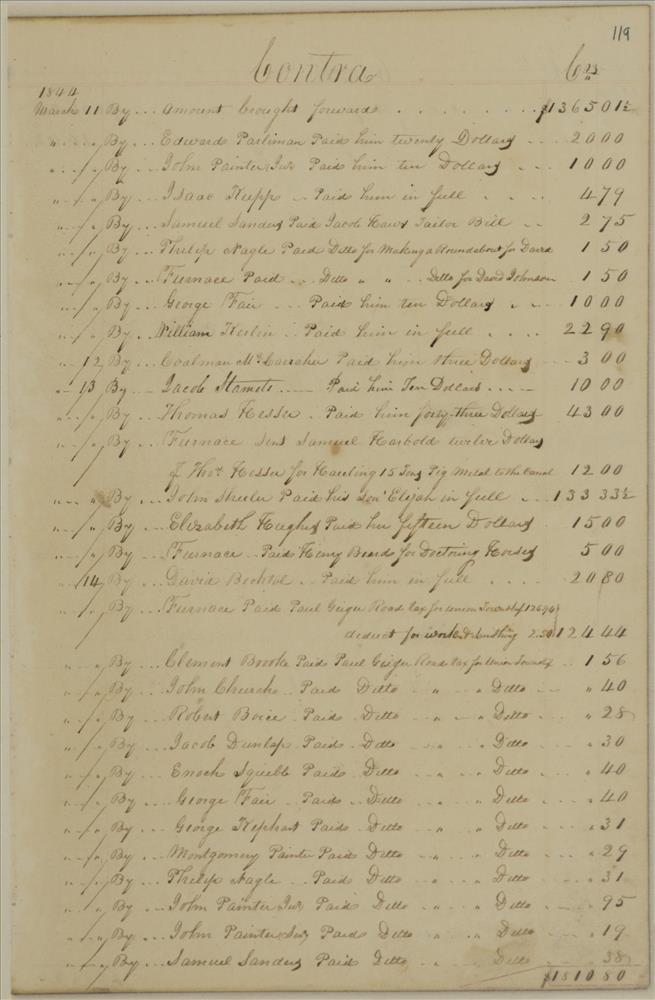 119
Contra Crs
1844
March 11 By ... Amount brought forward . . . . . . $1365 01½
" " " By ... Edward Parliman Paid him twenty Dollars ... 20 00
" " " By ... John Painter Junr Paid him ten Dollars ... 10 00
" " " By ... Isaac Kupp .. Paid him in full . . . . 4 79
" " " By ... Samuel Sanders Paid Jacob Haws Tailor Bill .. 2 75
" " " By ... Philip Nagle Paid Ditto for Making a Roundabout for David 1 50
" " " By ... Furnace Paid .. Ditto " " .. Ditto for David Johnson 1 50
" " " By ... George Fair ... Paid him ten Dollars . . . 10 00
" " " By ... William Kerlin .. Paid him in full . . . . 22 90
" 12 By ... Coalman McCaraher Paid him three Dollars ... 3 00
" 13 By ... Jacob Stamets ... Paid him Ten Dollars ..... 10 00
" " " By ... Thomas Hesser . Paid him forty-three Dollars 43 00
" " " By ... Furnace Sent Samuel Harbold twelve Dollars
of Thos Hesser for Hauling 15 Tons Pig Metal to the Canal 12 00
" " " By ... John Sheeler Paid his Son Elijah in full ... 133 33½
" " " By ... Elizabeth Hughs Paid her fifteen Dollars 15 00
" " " By ... Furnace .. Paid Henry Beard for Doctoring Horses 5 00
" 14 By ... David Bechtol .. Paid him in full . . . . 20 80
" " " By ... Furnace Paid Paul Geiger Road tax for Union Township $126.94
deduct for work 2.50 124 44
" " " By ... Clement Brooke Paid Paul Geiger Road tax for Union Townsp .. 1 56
" " " By ... John Church .. Paid Ditto " " Ditto ... " 40
" " " By ... Robert Boice .. Paid Ditto " " Ditto ... " 28
" " " By ... Jacob Dunlap .. Paid .. Ditto " " Ditto ... " 30
" " " By ... Enoch Squibb Paid .. Ditto " " Ditto ... " 40
" " " By ... George Fair .. Paid .. Ditto " " Ditto ... " 40
" " " By ... George Kephart Paid Ditto " " Ditto ... " 31
" " " By ... Montgomery Painter Paid Ditto " " Ditto ... " 29
" " " By ... Philip Nagle .. Paid Ditto " " Ditto ... " 31
" " " By ... John Painter Junr Paid Ditto " " Ditto ... " 95
" " " By ... John Painter Senr Paid Ditto " " Ditto ... " 19
" " " By ... Samuel Sanders Paid Ditto " " Ditto ... 38
$1810 80